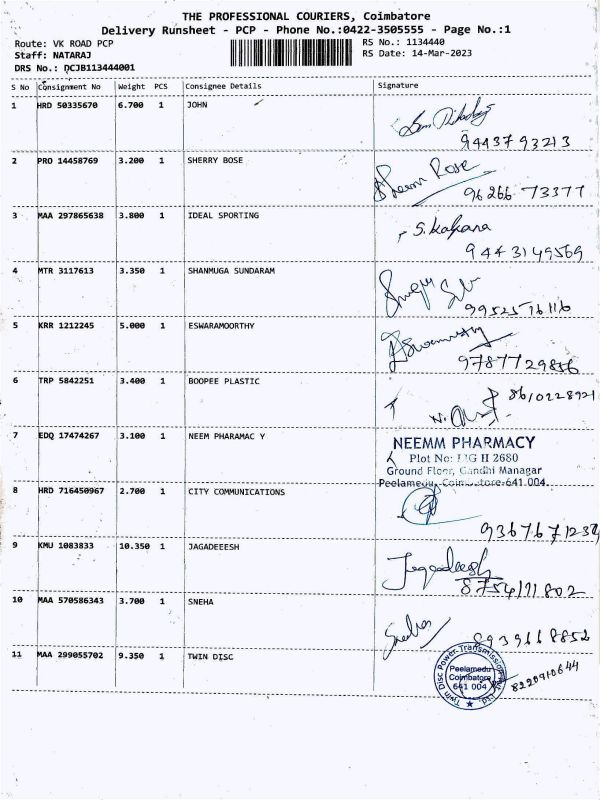 THE PROFESSIONAL COURIERS, Coimbatore
Delivery Runsheet - PCP - Phone No.:0422-3505555 - Page No.:1
Route: VK ROAD PCP
Staff: NATARAJ
DRS No.: DCJB113444001
RS No.: 1134440
RS Date: 14-Mar-2023
S No Consignment No Weight PCS Consignee Details Signature
1 HRD 50335670 6.700 1 JOHN
9443793213
2 PRO 14458769 3.200 1 SHERRY BOSE
96266 73377
3 MAA 297865638 3.800 1 IDEAL SPORTING
S. Kalpana
9443149569
4 MTR 3117613 3.350 1 SHANMUGA SUNDARAM
5 KRR 1212245 5.000 1 ESWARAMOORTHY
6 TRP 5842251 3.400 1 BOOPEE PLASTIC
8610228921
7 EDQ 17474267 3.100 1 NEEM PHARAMAC Y
NEEMM PHARMACY
Plot No: II 2680
Ground Floor, Gandhi Managar
Peelamedu, Coimbatore-641 004.
8 HRD 716450967 2.700 1 CITY COMMUNICATIONS
9 KMU 1083833 10.350 1 JAGADEEESH
Jagadeesh
10 MAA 570586343 3.700 1 SNEHA
Sneha
11 MAA 299055702 9.350 1 TWIN DISC
Twin Disc Power Transmission Ltd.
Peelamedu
Coimbatore
641 004
8220910644